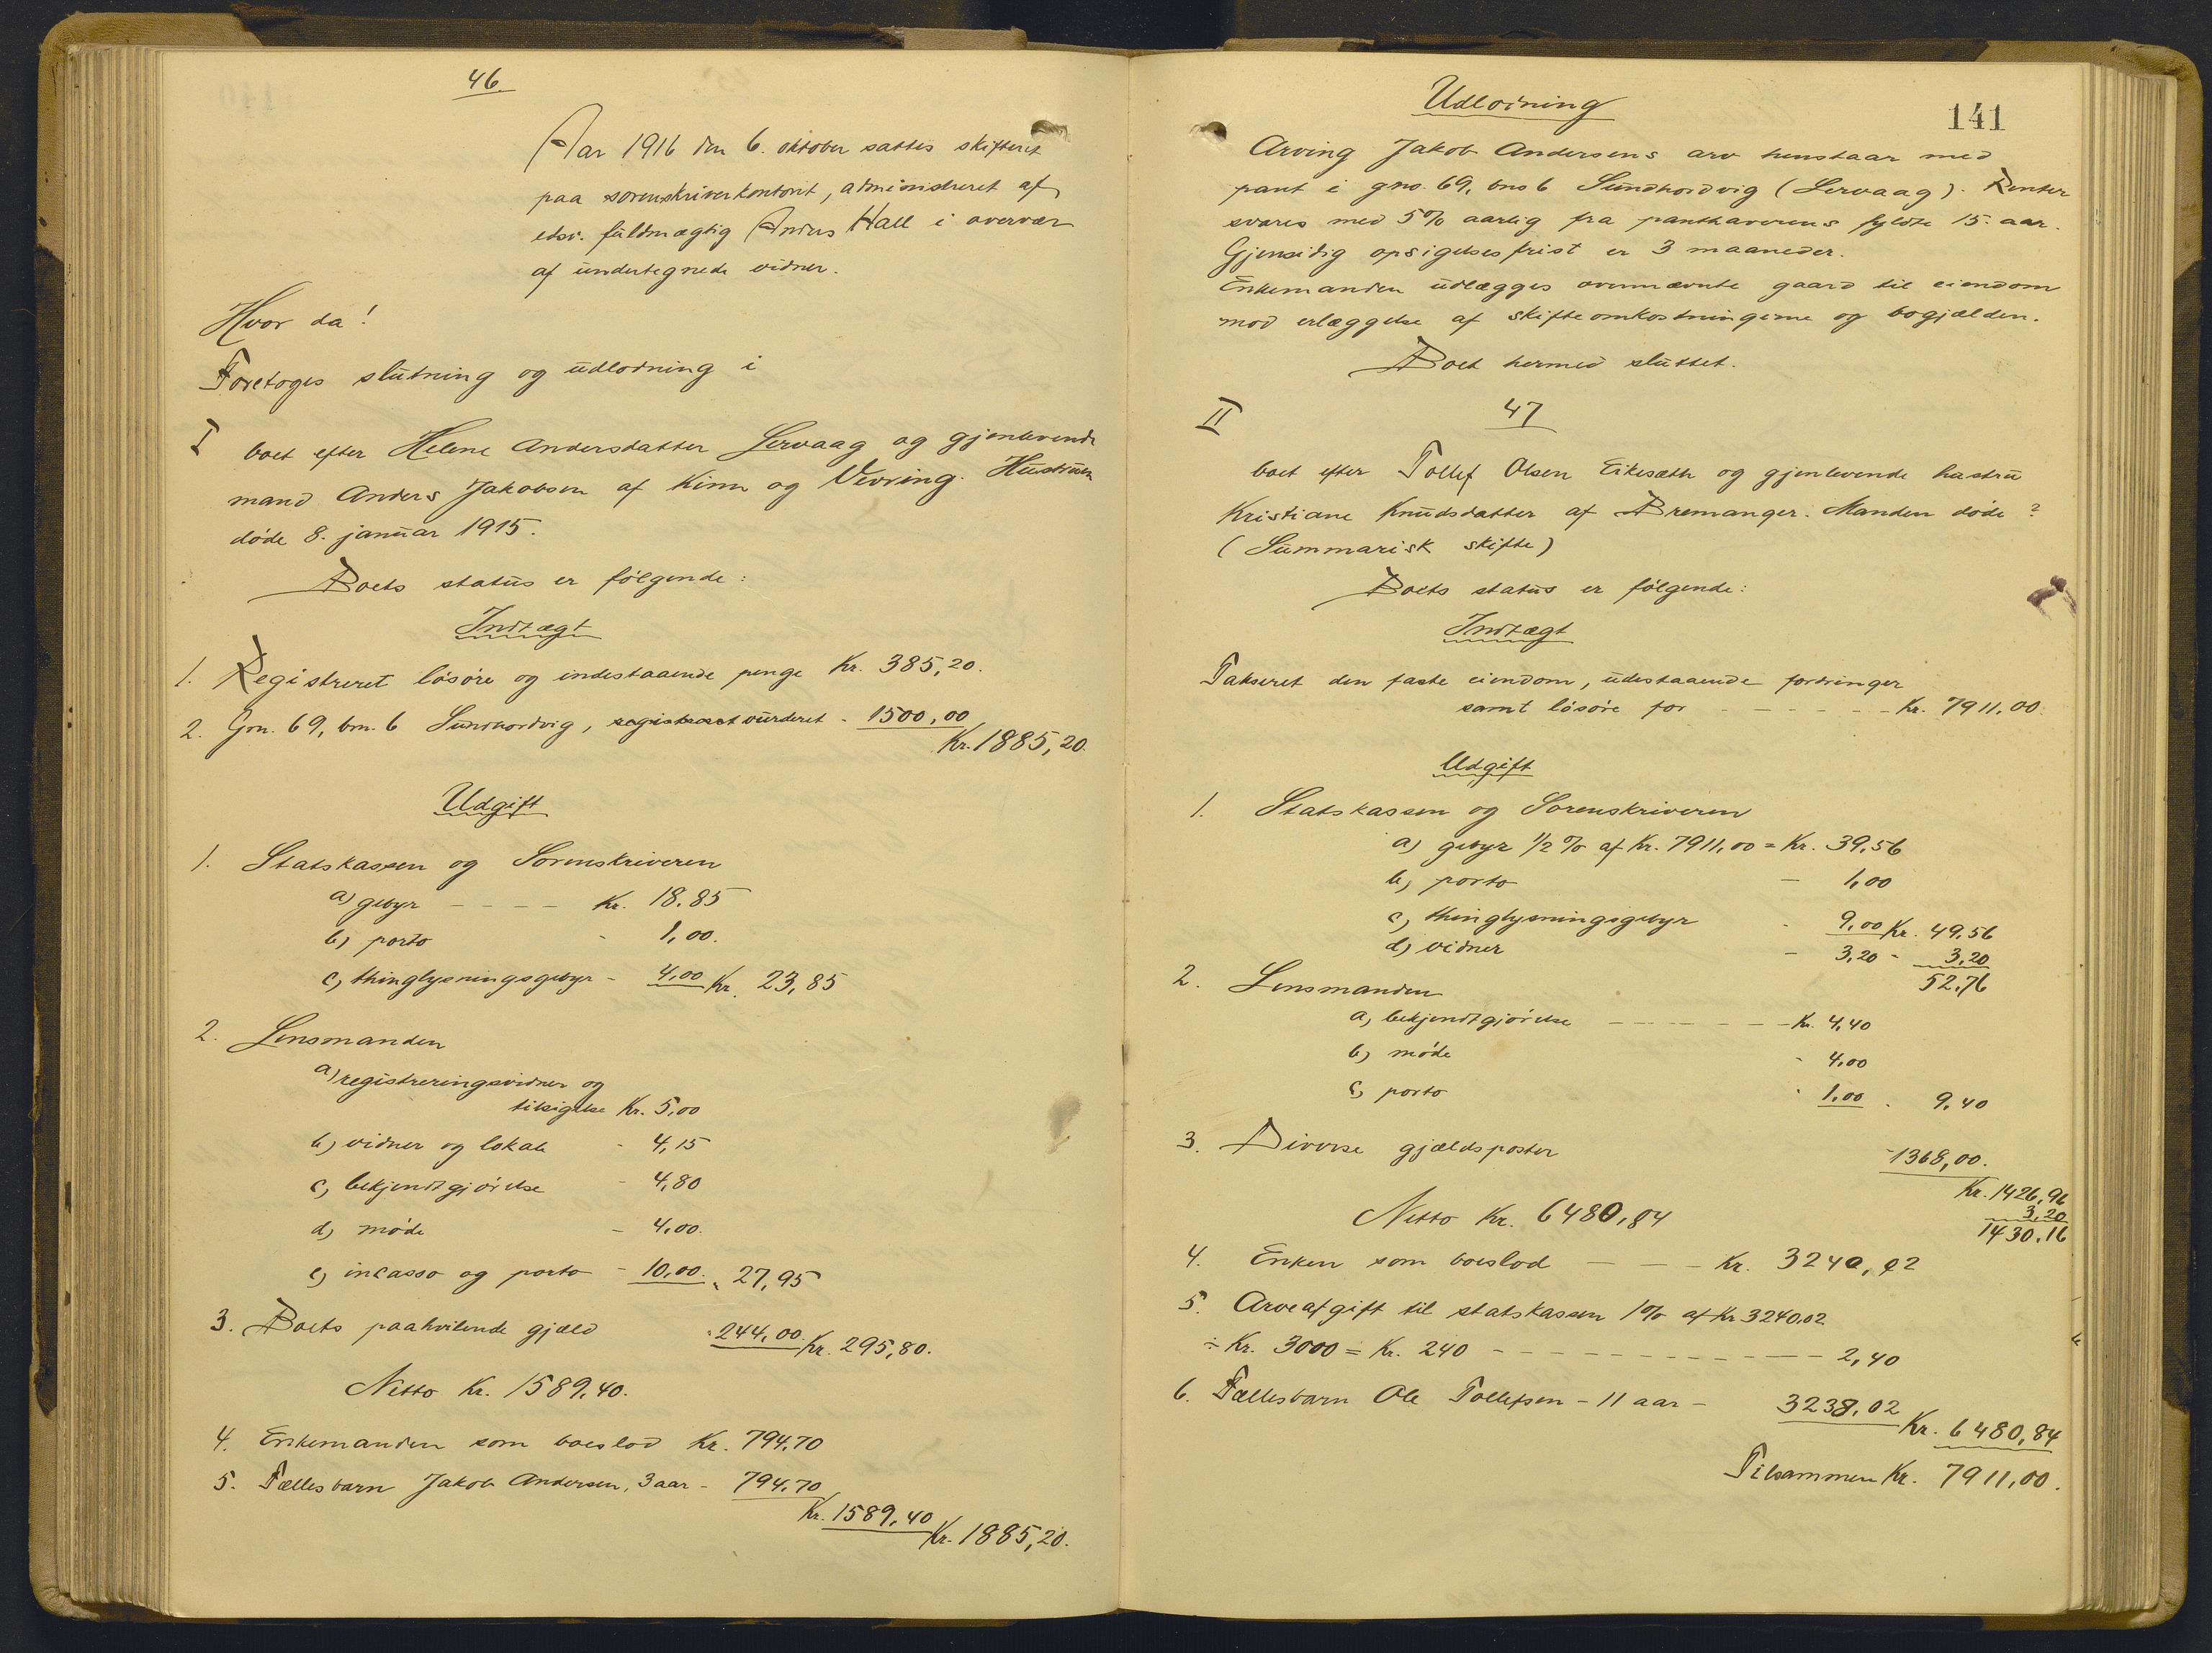 46.
Aar 1916 den 6. oktober sattes skifteret
paa sorenskriverkontoret, administreret af
edsv. fuldmægtig Anders Hall i overvær
af undertegnede vidner.
Hvor da!
Foretoges slutning og udlodning i
I boet efter Helene Andersdatter Lervaag og gjenlevende
mand Anders Jakobsen af Kinn og Vevring. Hustruen
døde 8. januar 1915.
Boets status er følgende:
Indtægt
1. Registreret løsøre og indestaaende penge Kr. 385,20.
2. Grn. 69, brn. 6 Sundhordvig, registreret vurderet - 1500,00
Kr. 1885,20.
Udgift
1. Statskassen og Sorenskriveren
a) gebyr - - - - Kr. 18.85
b) porto - 1,00.
c) thinglysningsgebyr - 4,00 Kr. 23,85
2. Lensmanden
a) registreringsvidner og
tilsigelse Kr. 5,00
b) vidner og lokale - 4,15
c) bekjendtgjørelse - 4,80
d) møde - 4,00.
e) incasso og porto - 10,00. - 27,95
3. Boets paahvilende gjæld - 244,00. Kr. 295,80.
Netto Kr. 1589,40.
4. Enkemanden som boeslod Kr. 794,70
5. Fællesbarn Jakob Andersen, 3 aar - 794,70
Kr. 1589,40
Kr. 1885,20.
Udlodning
141
Arving Jakob Andersens arv henstaar med
pant i gno. 69, bno 6 Sundhordvig (Lervaag). Renter
svares med 5% aarlig fra panthaverens fyldte 15. aar.
Gjensidig opsigelsesfrist er 3 maaneder.
Enkemanden udlægges ovennævnte gaard til eiendom
mod erlæggelse af skifteomkostningerne og bogjælden.
Boet hermed sluttet.
II 47
boet efter Tollef Olsen Eikesæth og gjenlevende hustru
Kristiane Knudsdatter af Bremanger. Manden døde ?
(Summarisk skifte)
Boets status er følgende:
Indtægt
Takseret den faste eiendom, udestaaende fordringer
samt løsøre for - - - - - Kr. 7911,00.
Udgift
1. Statskassen og Sorenskriveren
a) gebyr 1/2 % af Kr. 7911,00 = Kr. 39,56
b) porto - 1,00
c) thinglysningsgebyr - 9,00 Kr. 49,56
d) vidner - 3,20 - 3,20
52,76
2. Lensmanden
a) bekjendtgjørelse - - - - - - Kr. 4,40
b) møde - 4,00
c) porto - 1,00 - 9,40
3. Diverse gjældsposter - 1368,00.
Kr. 1426,96
3,20
1430,16
Netto Kr. 6480,84
4. Enken som boeslod - - - Kr. 3240,42
5. Arveafgift til statskassen 1% af Kr 3240,02
÷ Kr. 3000 = Kr. 240 - - - - - - - - - 2,40
6. Fællesbarn Ole Tollefsen - 11 aar - 3238,02
Kr. 6480,84
Tilsammen Kr. 7911,00.